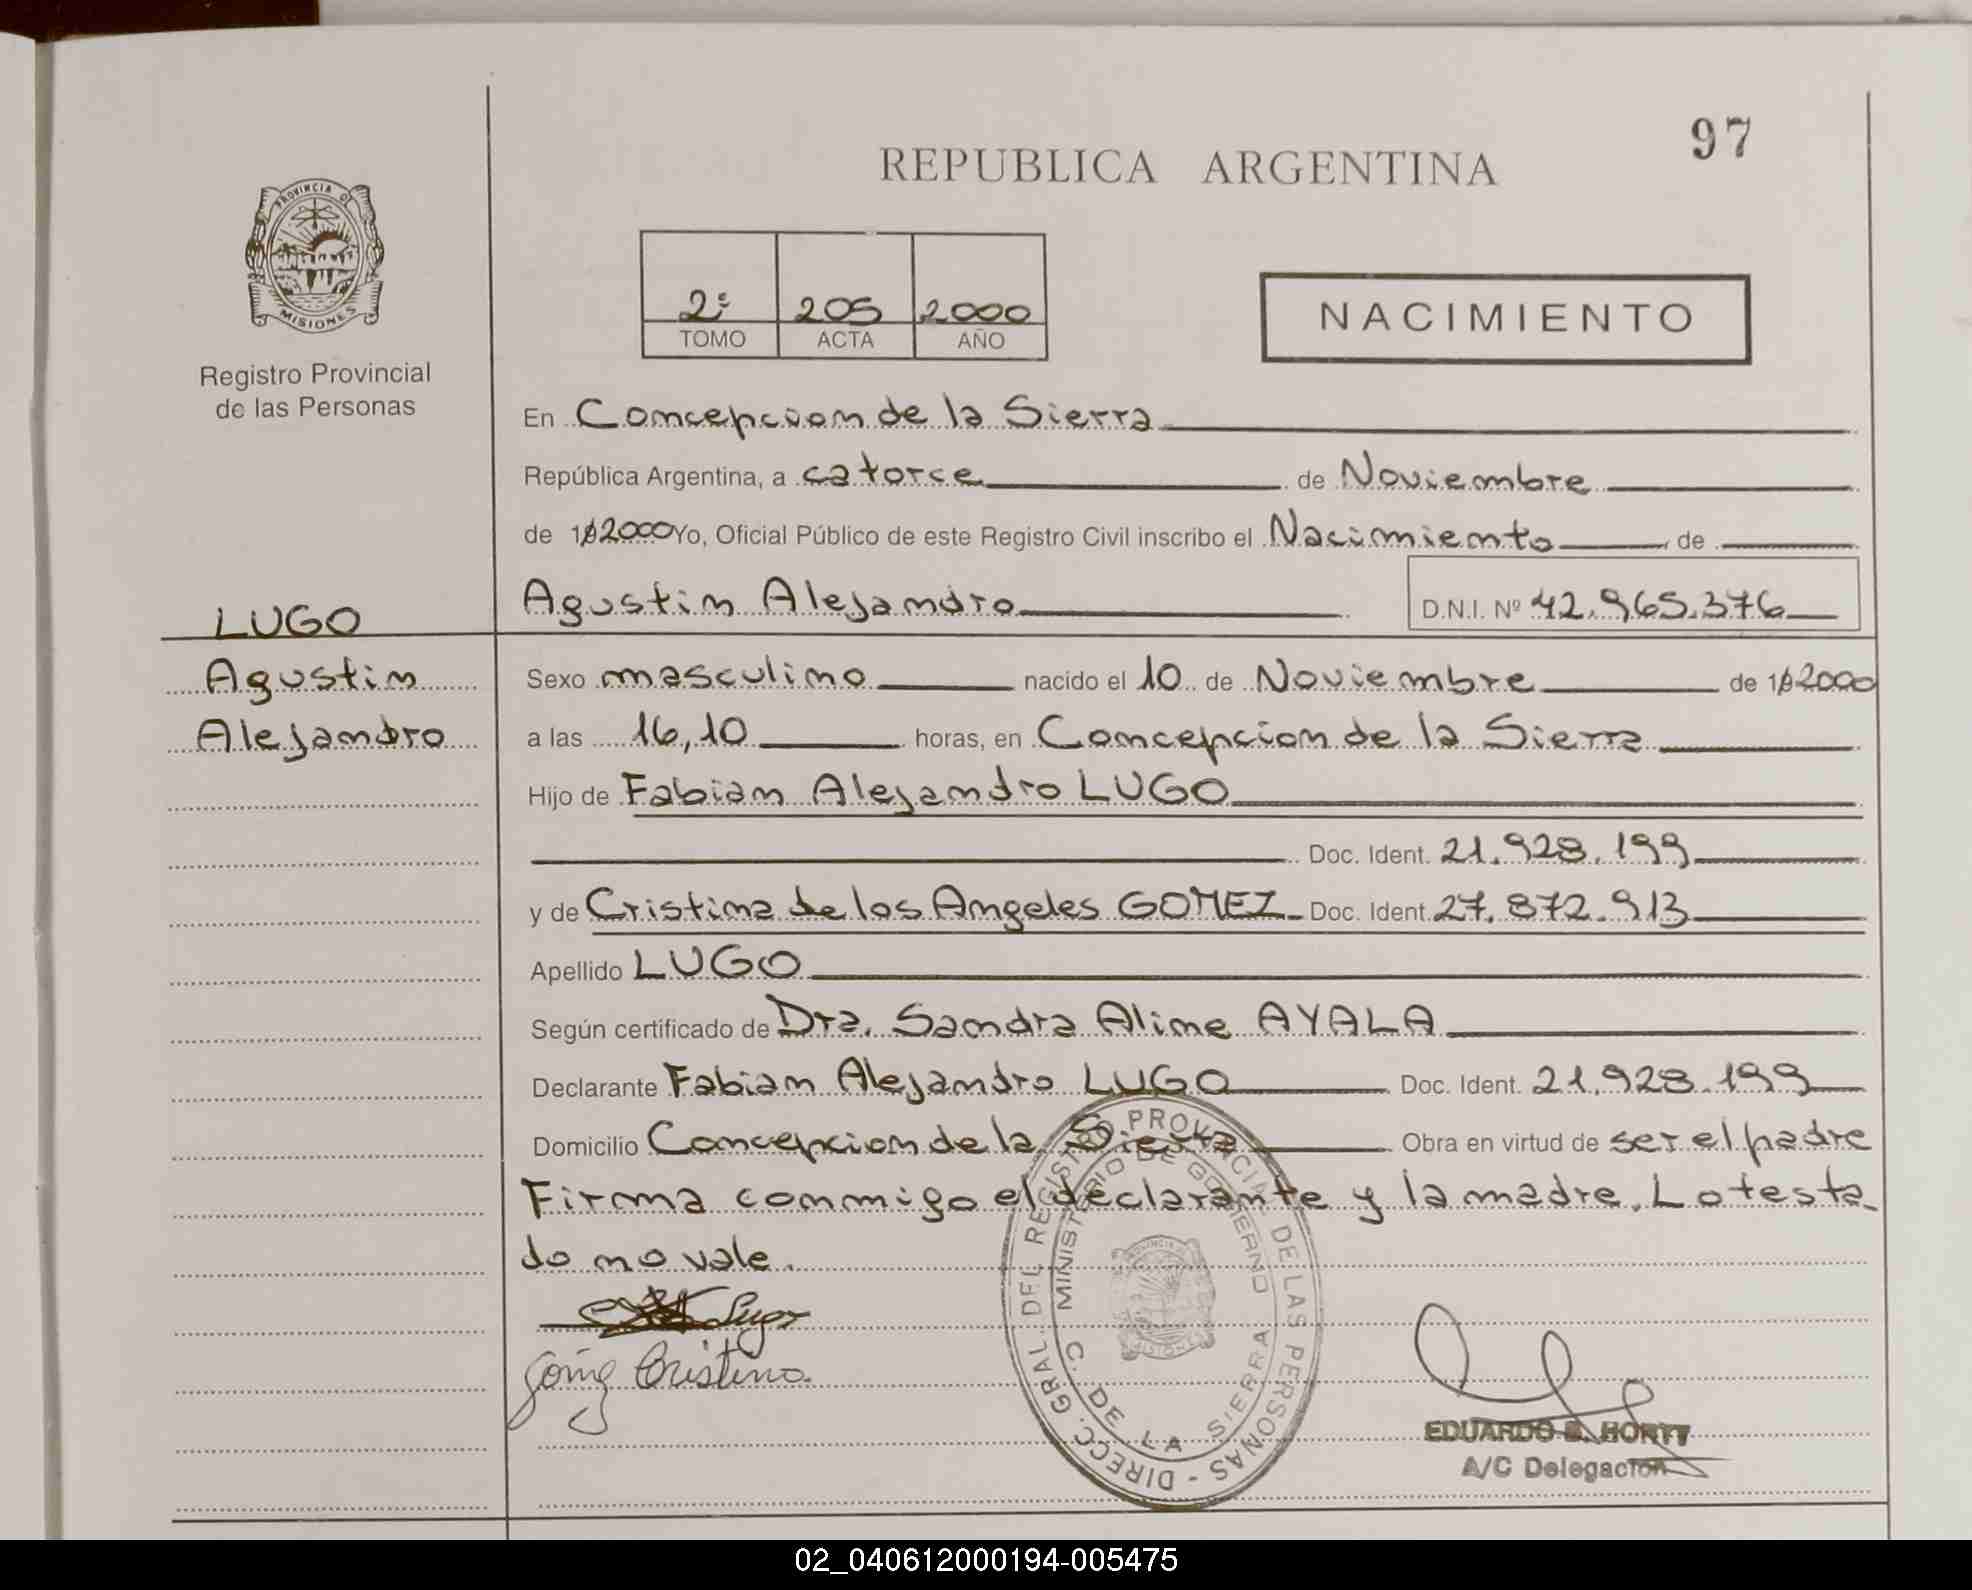 97
REPUBLICA ARGENTINA
PROVINCIA DE
MISIONES
Registro Provincial
de las Personas
2º 205 2000
TOMO ACTA AÑO
NACIMIENTO
En Concepcion de la Sierra
República Argentina, a catorce de Noviembre
de 19 2000 Yo, Oficial Público de este Registro Civil inscribo el Nacimiento de
Agustin Alejandro D.N.I. Nº 42.965.376
LUGO
Agustin
Alejandro
Sexo masculino nacido el 10 de Noviembre de 19 2000
a las 16,10 horas, en Concepcion de la Sierra
Hijo de Fabian Alejandro LUGO
Doc. Ident. 21.928.199
y de Cristina de los Angeles GOMEZ Doc. Ident. 27.872.913
Apellido LUGO
Según certificado de Dra. Sandra Aline AYALA
Declarante Fabian Alejandro LUGO Doc. Ident. 21.928.199
Domicilio Concepcion de la Sierra Obra en virtud de ser el padre
Firma conmigo el declarante y la madre. Lo testa-
do no vale.
Lugo
Cristina
DIRECC. GRAL. DEL REGISTRO PROVINCIAL DE LAS PERSONAS -
MINISTERIO DE GOBIERNO
C. DE LA SIERRA
EDUARDO
A/C Delegación
02_040612000194-005475